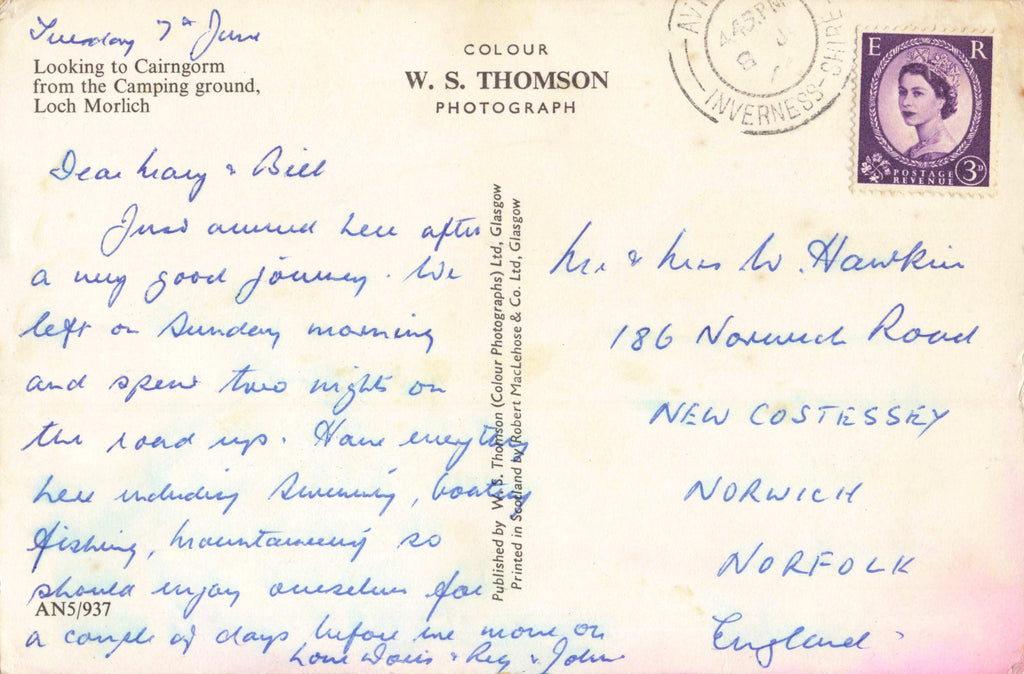 Tuesday 7th June
Looking to Cairngorm
from the Camping ground,
Loch Morlich
COLOUR
W. S. THOMSON
PHOTOGRAPH
4 45 PM
8 J
INVERNESS-SHIRE
E R
POSTAGE
REVENUE
3D
Dear Mary & Bill
Just arrived here after
a very good journey. We
left on Sunday morning
and spent two nights on
the road up. Have everything
here including swimming, boating
fishing, mountaineering so
should enjoy ourselves for
a couple of days before we move on
Love Doris & Reg & John
AN5/937
Published by W. S. Thomson (Colour Photographs) Ltd, Glasgow
Printed in Scotland by Robert MacLehose & Co. Ltd, Glasgow
Mr & Mrs W. Hawkin
186 Norwich Road
NEW COSTESSEY
NORWICH
NORFOLK
England